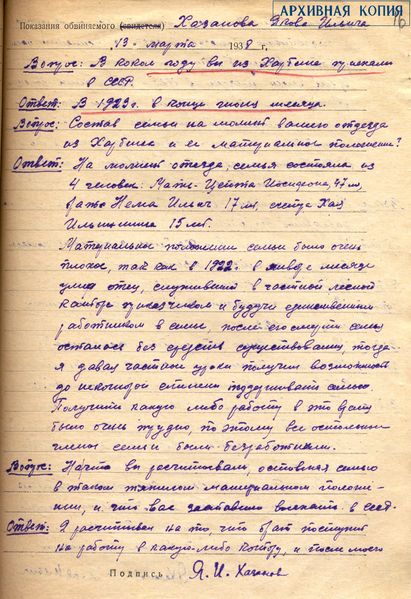 АРХИВНАЯ КОПИЯ
Показания обвиняемого (свидетеля) Хазанова Якова Ильича
13 марта 1938 г.
Вопрос: В каком году вы из Харбина приехали
в СССР.
Ответ: В 1923 г. в конце июня месяца.
Вопрос: Состав семьи на момент вашего отъезда
из Харбина и ее материальное положение?
Ответ: На момент отъезда, семья состояла из
4 человек: Мать-Цейта 47 л,
брат Нема Ильич 17 л, сестра Хая
Ильинична 15 лет.
Материальное положение семьи было очень
плохое, так как в 1922 г. в январе месяце
умер отец, служивший в частной лесной
конторе приказчиком и будучи единственным
работником в семье, после его смерти семья
осталась без средств существования, тогда
я давая частные уроки получил возможность
до некоторой степени поддерживать семью
Получить какую либо работу в это время
было очень трудно, поэтому все остальные
члены семьи были безработными.
Вопрос: На что вы рассчитывали, оставляя семью
в таком тяжелом материальном положе-
нии, и что вас заставило выехать в СССР.
Ответ: Я рассчитывал на то, что брат поступит
на работу в какую-либо контору, и после моего
Подпись Я. И. Хазанов